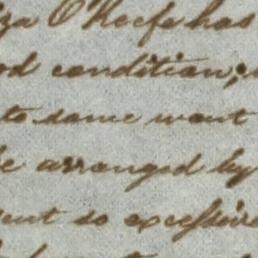 za O'Keefe has
od condition;
to same want
be arranged by
ent so excessive